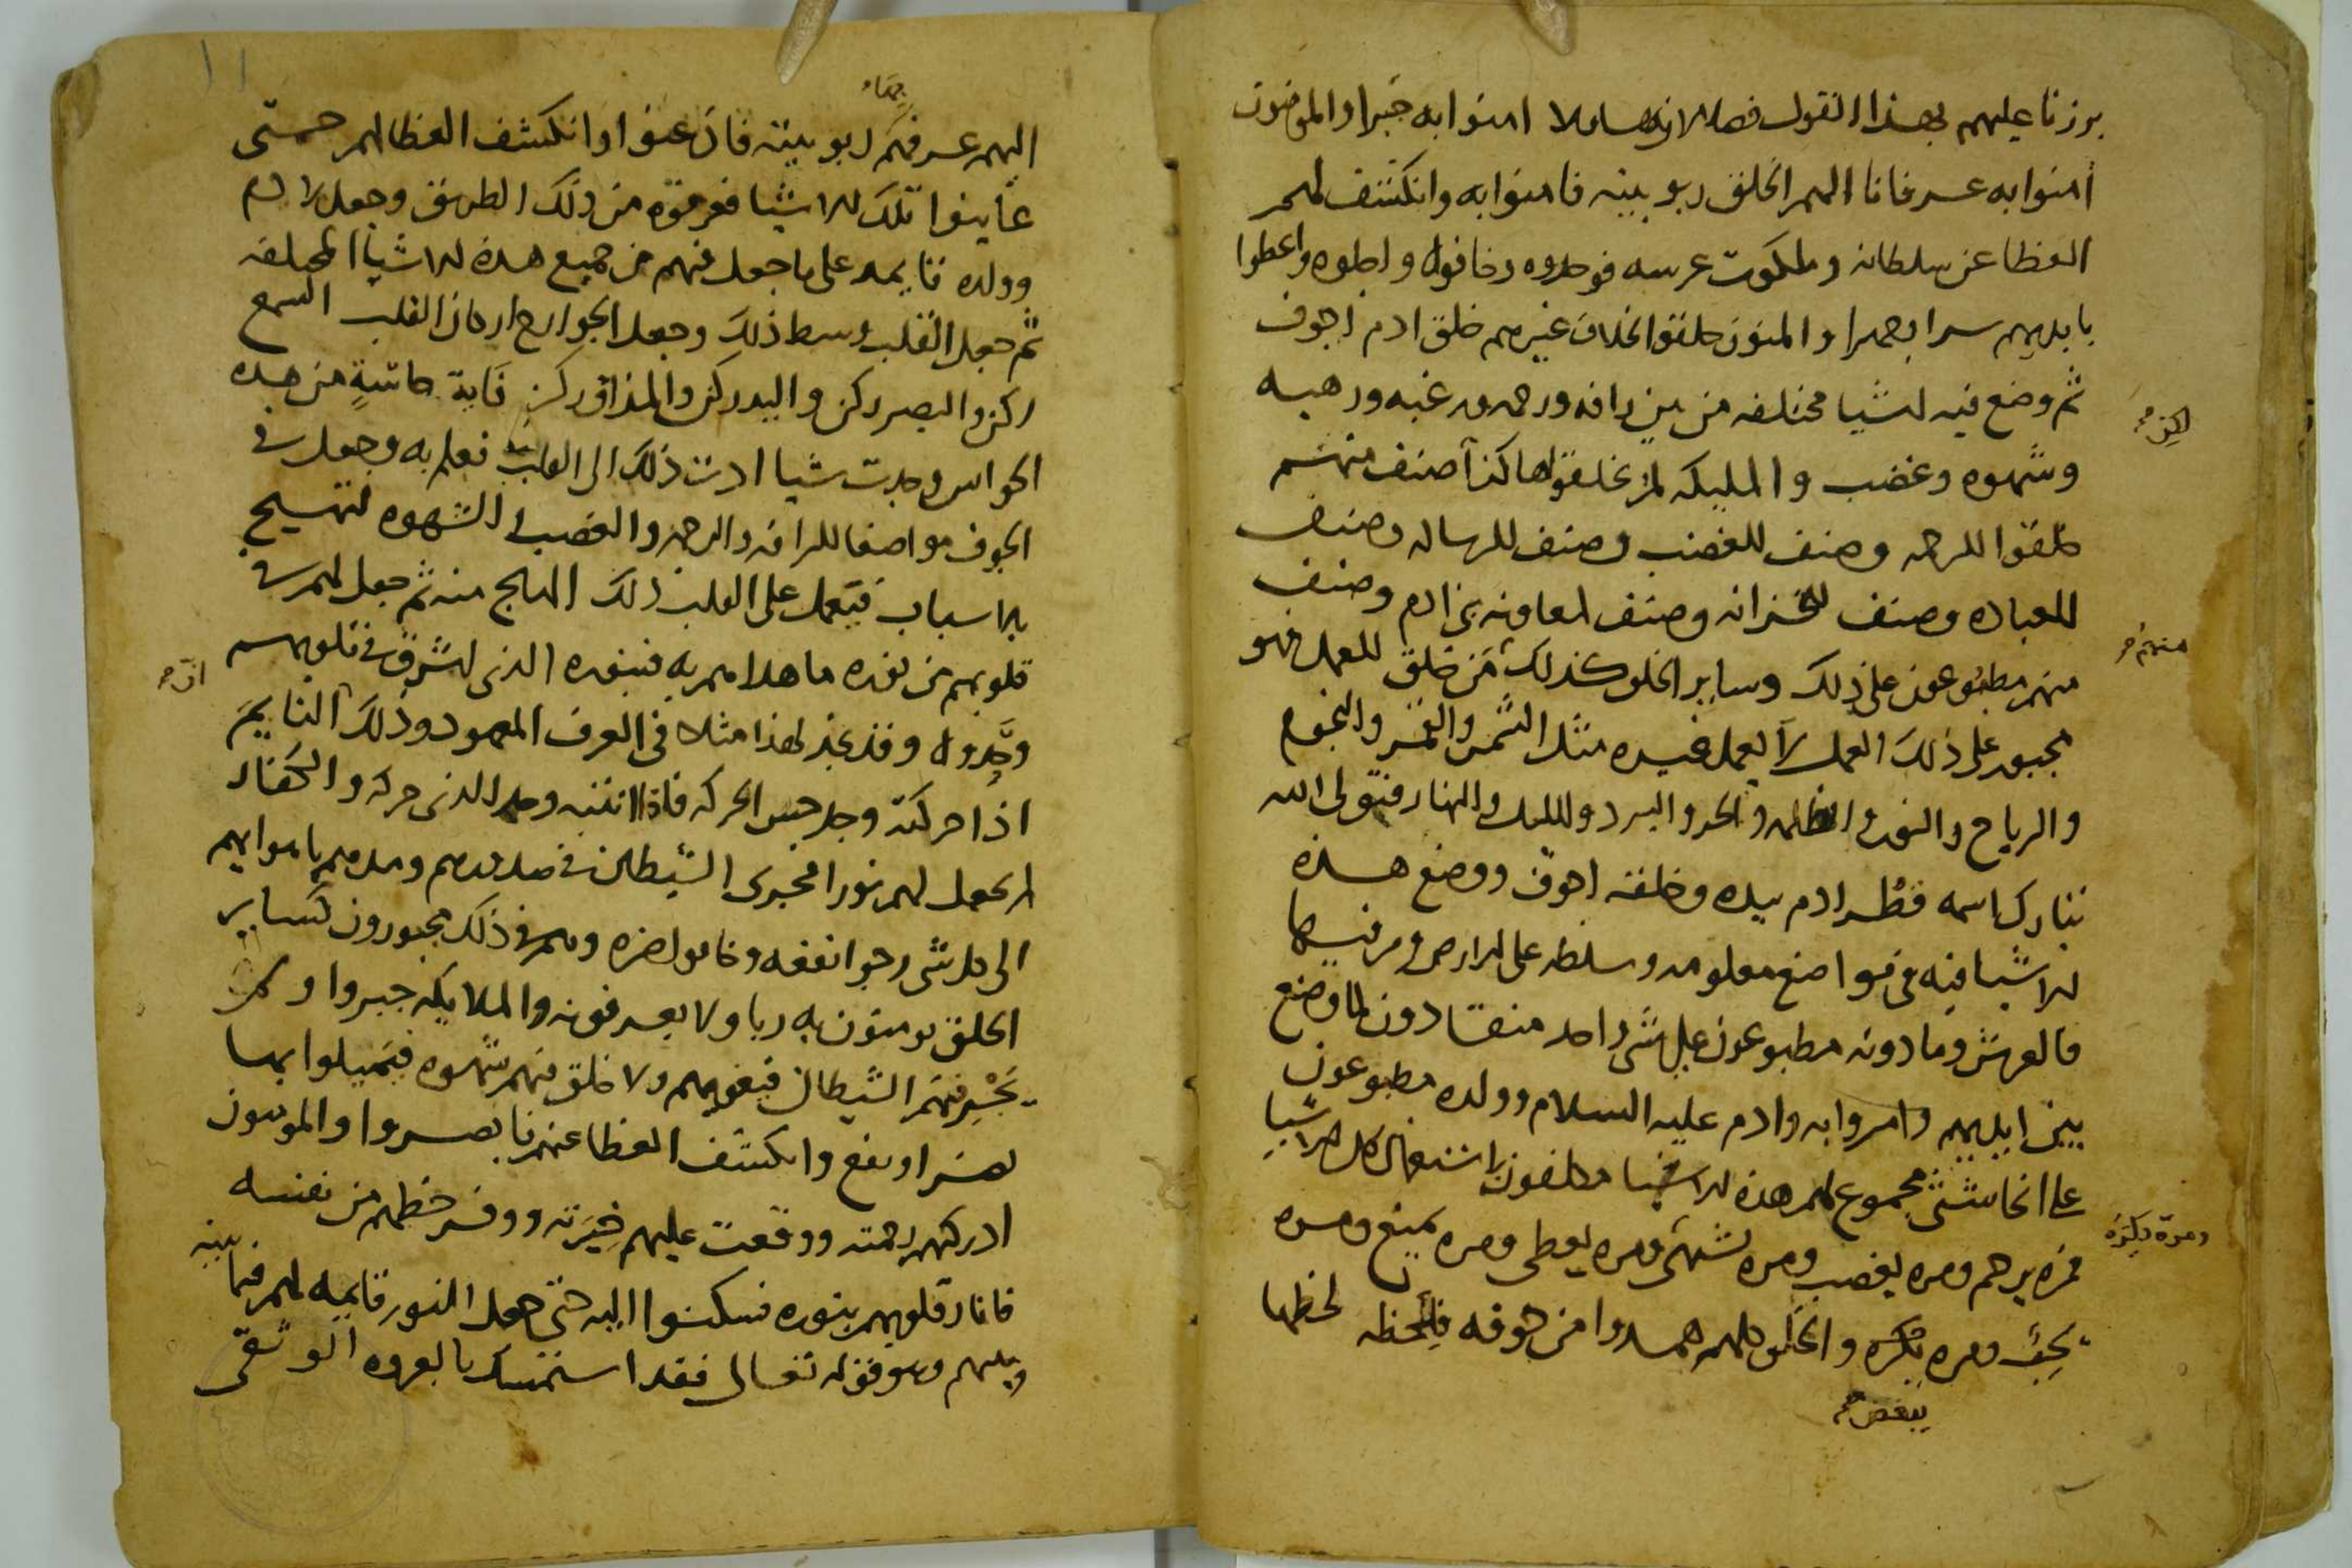 برزنا عليهم بهذا القول فصار امنوا به جبرا والمومنون
امنوا به عرفانا الهم الخلق ربوبيته فامنوا به وانكشف لهم
الغطا عن سلطانه وملكوت عرشه فوحدوه وخافوه واعطوا
بايديهم والمومنون خلقوا بخلاف غيرهم خلق ادم اجوف
ثم وضع فيه اشيا مختلفه من بين رافه ورحمه ورغبه ورهبه
الجن
وشهوه وغضب والمليكه لم يخلقوا هاكذا صنف منهم
خلقوا للرحمه وصنف للغضب وصنف للرساله وصنف
للعباده وصنف للخزانه وصنف لمعاونه بني ادم وصنف
منهم مطبوعون على ذلك وساير الخلق كذلك من خلق للعمل فهو
منهم
مجبور على ذلك العمل لا يعمل غيره مثل الشمس والقمر والنجوم
والرياح والنور والظلمه والحر والبرد والليل والنهار فتولى الله
تبارك اسمه فطر ادم بيده وخلقه اجوف ووضع هذه
الاشيا فيه في مواضع معلومه وسلطه على الارض ومن فيها
فالعرش وما دونه مطبوعون على شي واحد منقادون لما وضع
بين ايديهم وامروا به وادم عليه السلام وولده مطبوعون
على انحا شتى مجموع لهم هذه الاشيا مكلفون استعمال كل الاشيا
فمره يرحم ومره يغضب ومره يشتهي ومره يعطي ومره يمنع ومره
ومرة يكره
يحب ومره يكره والخلق كلهم همدوا من خوفه فلحظه لحظها
يبغض
اليهم عرفهم ربوبيته فان عنوا وانكشف الغطا لهم حتى
بهاء
عاينوا تلك الاشيا فعرفوه من ذلك الطريق وجعل لادم
وولده قايمه على ما جعل فيهم من جميع هذه الاشيا المختلفه
ثم جعل القلب وسط ذلك وجعل الجوارح اركان القلب السمع
ركن والبصر ركن واليد ركن والمذاق ركن فاية حاسة من هذه
الحواس وجدت شيا ادت ذلك الى القلب فعلم به وجعل في
الجوف مواضعا للرافه والرحمه والغضب والشهوه لتهيج
بالاسباب فيعمل على القلب ذلك الهايج منه ثم جعل لهم في
قلوبهم من نوره ما هداهم به فبنوره الذي اشرق في قلوبهم
انه
وحدوه وقد نجد لهذا مثلا في العرف المعهود وذلك النايم
اذا حركته وجد حس الحركه فاذا انتبه وجد الذي حركه والكفار
لم يجعل لهم نورا فجرى الشيطان في صدورهم ومدهم باهوايهم
الى كل شي رجوا نفعه وخافوا ضره وهم في ذلك مجبورون كساير
الخلق يومنون به ربا ولا يعرفونه والملايكه جبروا ولم
يجر فيهم الشيطان فيغويهم ولا خلق فيهم شهوه فيميلوا بها
لضر او نفع وانكشف الغطا عنهم فابصروا والمومنون
ادركتهم رحمته ووقعت عليهم خيرته ووفر حظهم من نفسه
فانار قلوبهم بنوره فسكنوا اليه حتى جعل النور قايمه لهم فيما بينه
وبينهم وهو قوله تعالى فقد استمسك بالعروه الوثقى